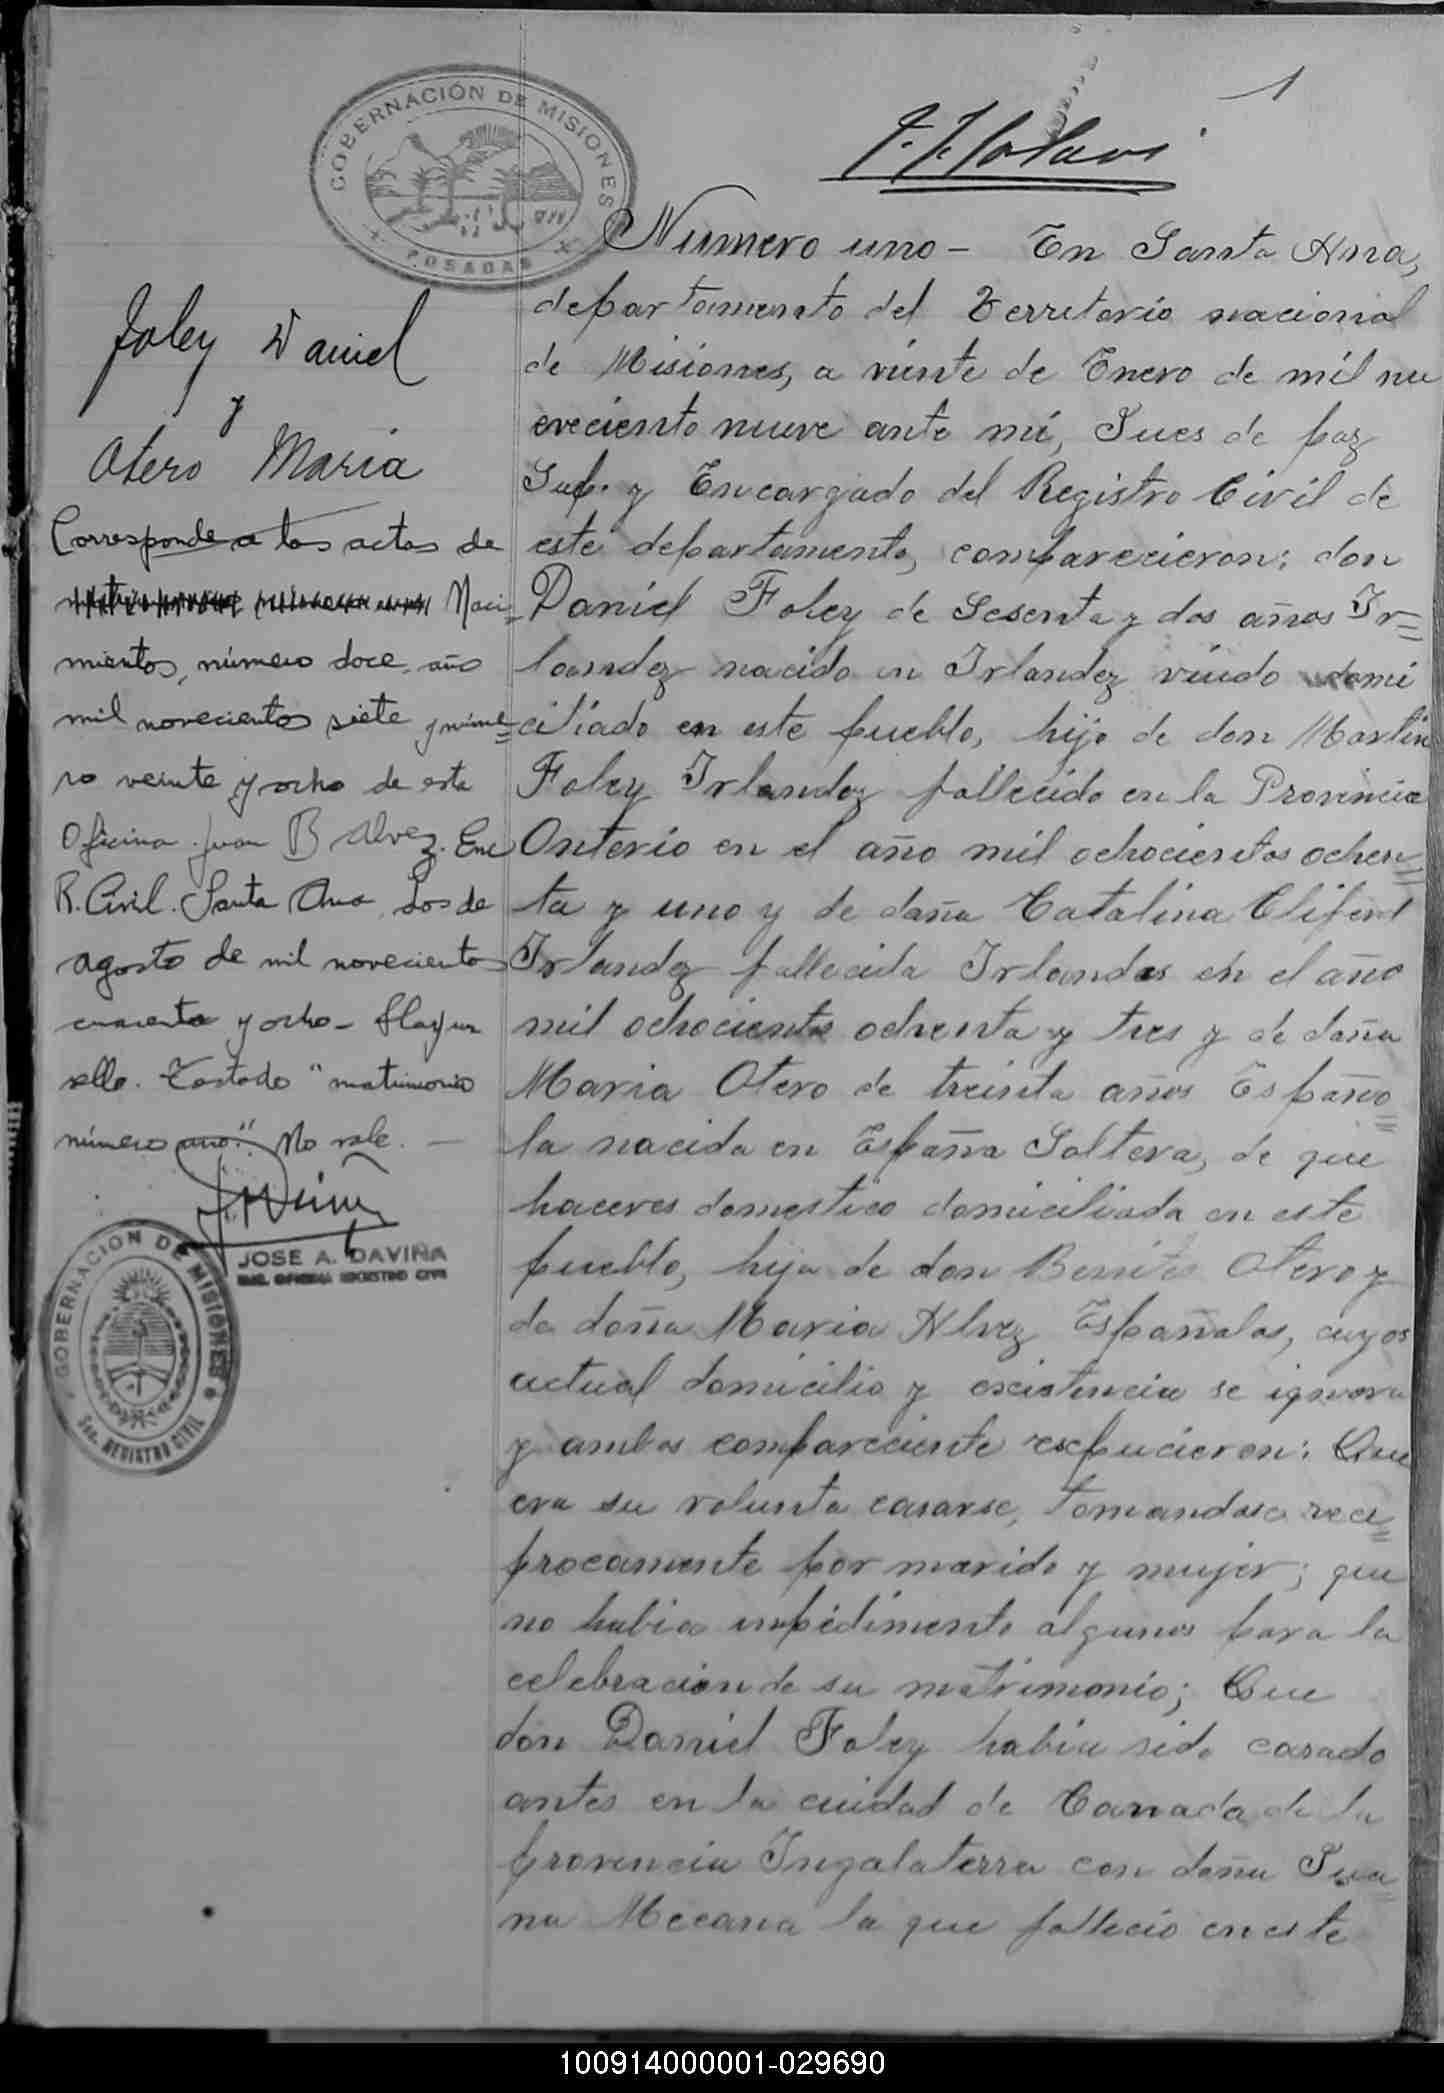 1
GOBERNACIÓN DE MISIONES
POSADAS
Foley Daniel
y
Otero Maria
Corresponde a las actas de
Naci=
mientos, número doce, año
mil novecientos siete y núme=
ro veinte y ocho de esta
Oficina. Juan B Alvez. Enc
R. Civil. Santa Ana, dos de
agosto de mil novecientos
cuarenta y ocho - Hay un
sello. Testado "matrimonio
número uno": No vale. —
JOSE A. DAVIÑA
ENC. OFICINA REGISTRO CIVIL
GOBERNACION DE MISIONES
Sec. REGISTRO CIVIL
Numero uno - En Santa Ana,
departamento del Territorio nacional
de Misiones, a viente de Enero de mil nu
eveciento nueve ante mí, Jues de paz
Sup. y Encargado del Registro Civil de
este departamento, comparecieron: don
Daniel Foley de Sesenta y dos años Ir=
landez nacido en Irlandez viudo domi
ciliado en este pueblo, hijo de don Martin
Foley Irlandez fallecido en la Provincia
Onterio en el año mil ochocientos ochen=
ta y uno y de daña Catalina Cliford
Irlandez fallecida Irlandes en el año
mil ochocientos ochenta y tres y de daña
Maria Otero de treinta años Españo=
la nacida en España Soltera, de que
haceres domestico domiciliada en este
pueblo, hija de don Benito Otero y
de doña Maria Alvez Españoles, cuyos
actual domicilio y existencia se ignora
y ambos compareciente expucieron: Que
era su volunta casarse, tomandose reci=
procamente por marido y mujer; que
no habia impedimento algunos para la
celebracion de su matrimonio; Que
don Daniel Foley habia sido casado
antes en la cuidad de Canada de la
provincia Ingalaterra con doña Jua=
na Mecana la que fallecio en este
100914000001-029690